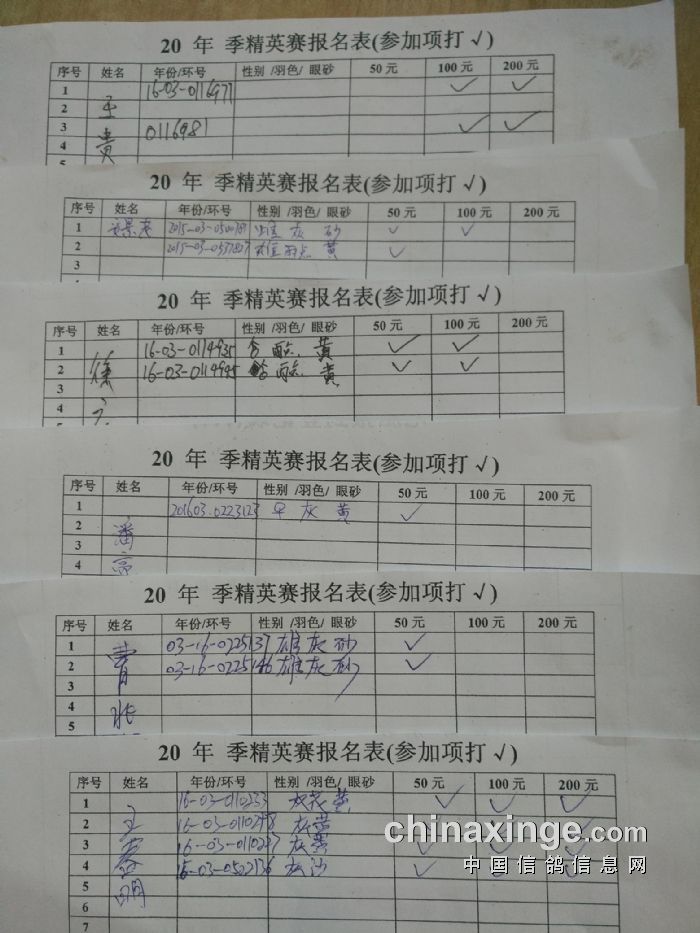 20 年 季精英赛报名表(参加项打 √)
序号 姓名 年份/环号 性别 /羽色/ 眼砂 50 元 100 元 200 元
1 16-03-0116971 √ √
2 王
3 0116981 √ √
贵
20 年 季精英赛报名表(参加项打 √)
序号 姓名 年份/环号 性别 /羽色/ 眼砂 50 元 100 元 200 元
1 雄 灰 砂 √ √
2 2015-03-0537807 雄 雨点 黄 √
3
20 年 季精英赛报名表(参加项打 √)
序号 姓名 年份/环号 性别 /羽色/ 眼砂 50 元 100 元 200 元
1 16-03-0114935 黄 √ √
2 16-03-0114945 黄 √ √
3
4
20 年 季精英赛报名表(参加项打 √)
序号 姓名 年份/环号 性别 /羽色/ 眼砂 50 元 100 元 200 元
1 201603.0223123 灰 黄 √
2
3 潘
4
20 年 季精英赛报名表(参加项打 √)
序号 姓名 年份/环号 性别 /羽色/ 眼砂 50 元 100 元 200 元
1 03-16-0225137 雄 灰 砂 √
2 曹 03-16-0225146 雄 灰 砂 √
3
4
5
20 年 季精英赛报名表(参加项打 √)
序号 姓名 年份/环号 性别 /羽色/ 眼砂 50 元 100 元 200 元
1 16-03-0110233 灰花 黄 √ √ √
2 王 16-03-0110248 灰 黄
3 16-03-0110247 灰 黄 √ √ √
4 春 16-03-0522136 灰 沙 √ √ √
5 明
6
7
chinaxinge.com
中国信鸽信息网